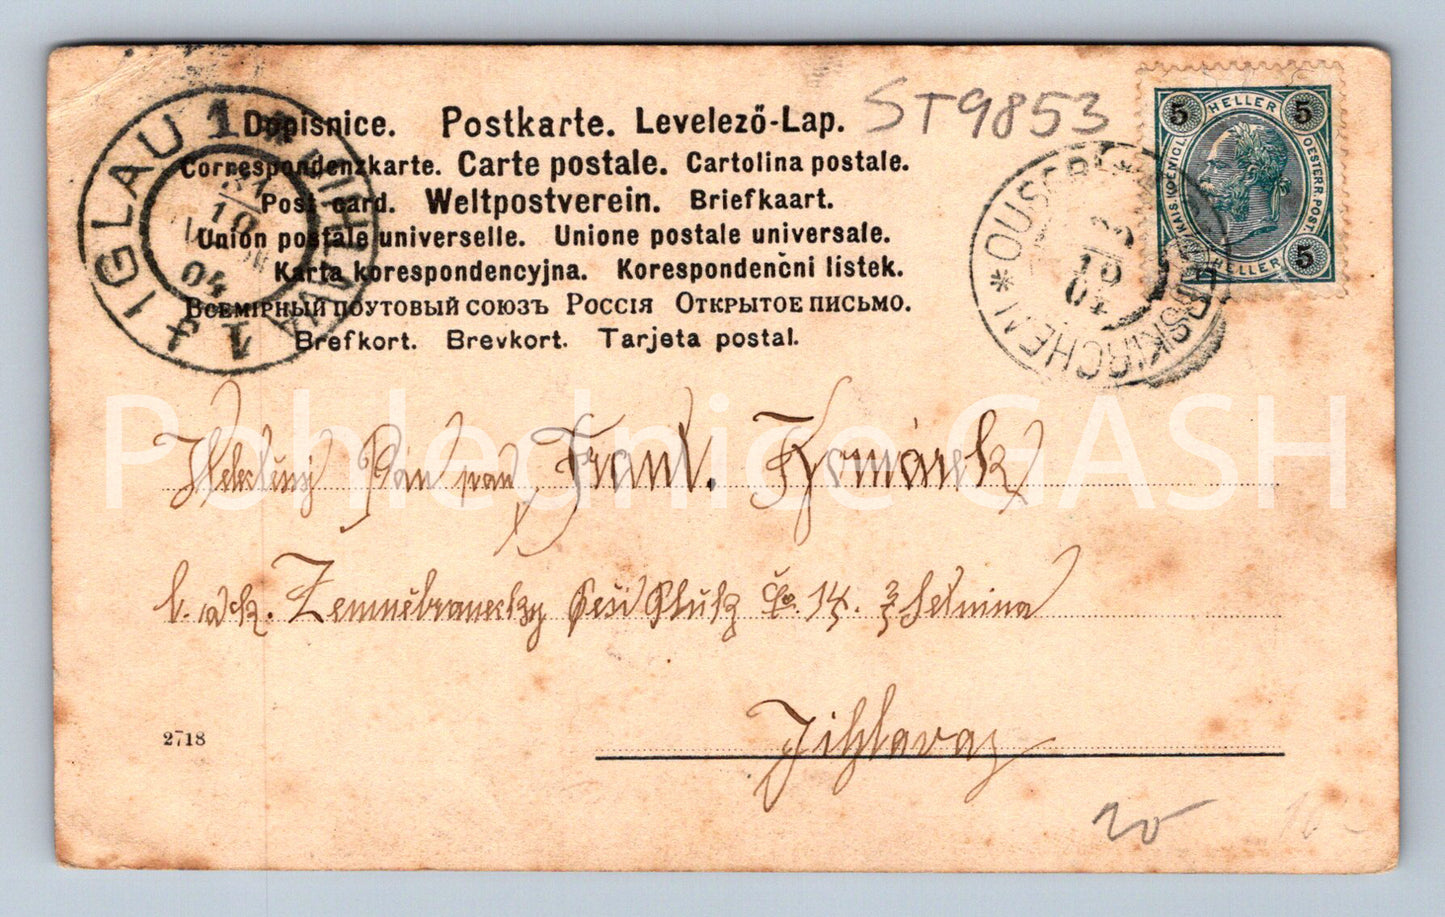 Dopisnice. Postkarte. Levelező-Lap.
Correspondenzkarte. Carte postale. Cartolina postale.
Post card. Weltpostverein. Briefkaart.
Union postale universelle. Unione postale universale.
Karta korespondencyjna. Korespondenčni listek.
Всемірный поутовый союзъ Россія Открытое письмо.
Brefkort. Brevkort. Tarjeta postal.
ST9853
5 HELLER 5
KAIS. KOENIGL. OESTERR. POST
HELLER 5
IGLAU 1
10
04
JIHLAVA 1
10
04
Pohlednice GASH
Pán pan Frant. Komárek
Jihlava
2718
20